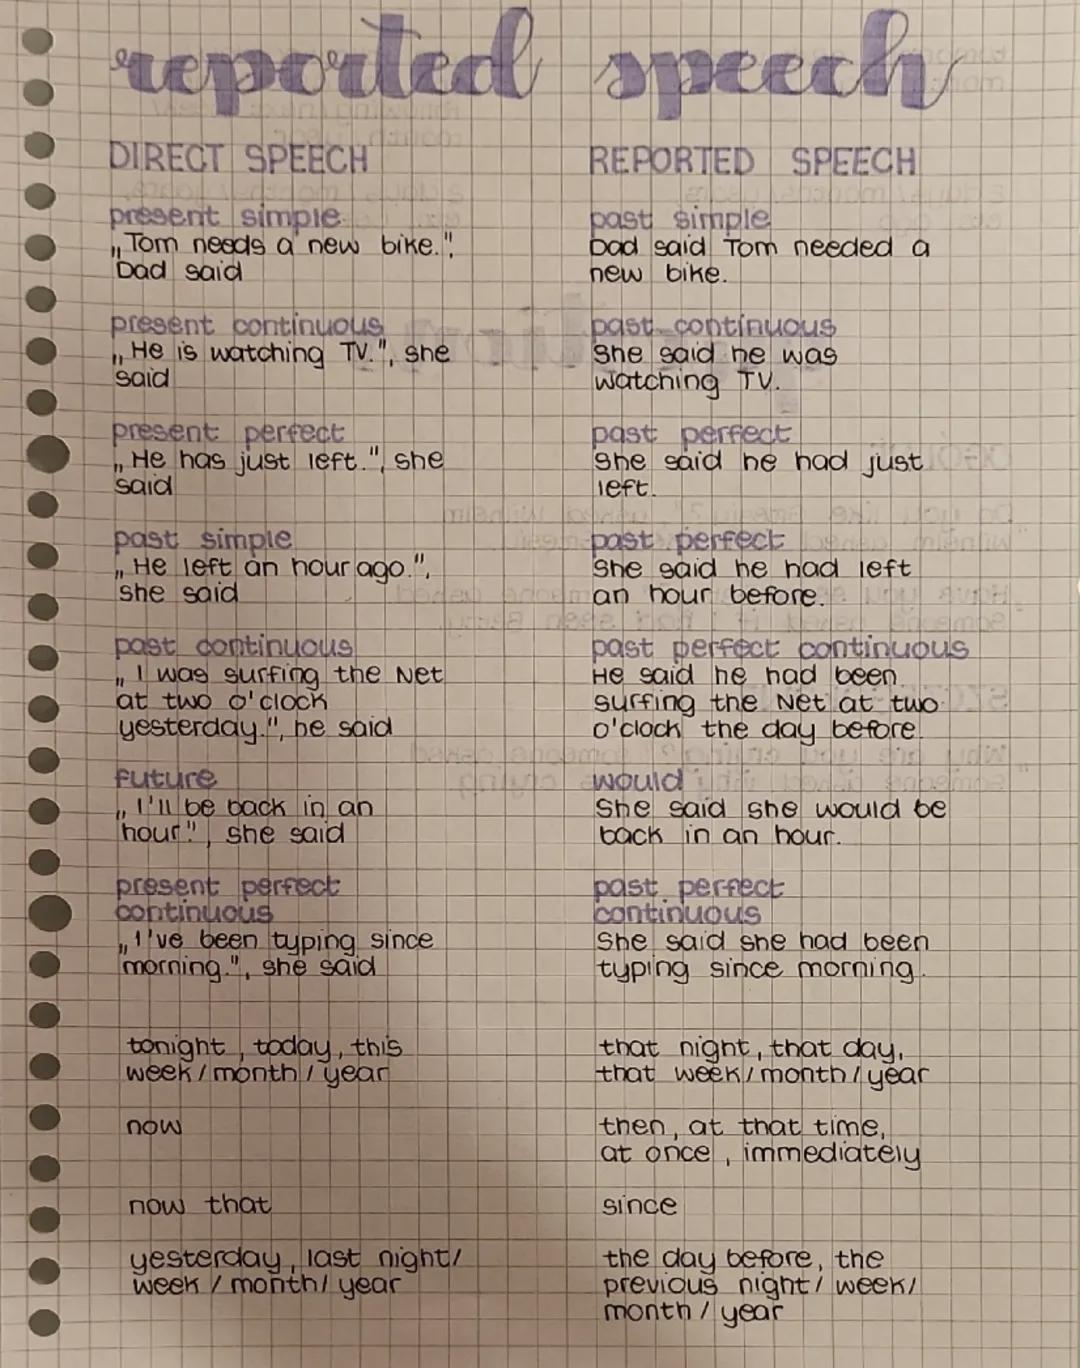 reported speech
DIRECT SPEECH
REPORTED SPEECH
present simple
„Tom needs a new bike.",
Dad said
past simple
Dad said Tom needed a
new bike.
present continuous
„He is watching TV.", she
said
past continuous
She said he was
watching TV.
present perfect
„He has just left.", she
said
past perfect
She said he had just
left.
past simple
„He left an hour ago.",
she said
past perfect
She said he had left
an hour before.
past continuous
„I was surfing the Net
at two o'clock
yesterday.", he said
past perfect continuous
He said he had been
surfing the Net at two
o'clock the day before.
future
„I'll be back in an
hour", she said
would
She said she would be
back in an hour.
present perfect
continuous
„I've been typing since
morning.", she said
past perfect
continuous
She said she had been
typing since morning.
tonight, today, this
week/month/year
that night, that day,
that week/month/year
now
then, at that time,
at once, immediately
now that
since
yesterday, last night/
week/month/year
the day before, the
previous night/week/
month/year